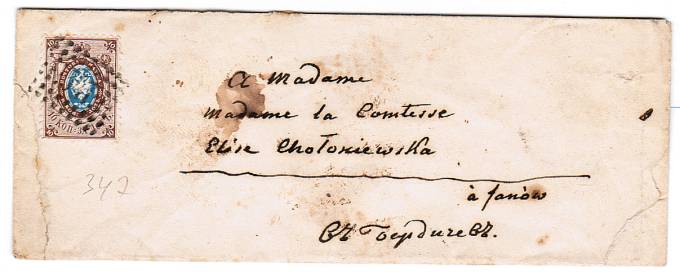 A Madame
Madame la Comtesse
Elise Chołoniewska
à Janów
въ Бердичевъ.
10 КОП.
342